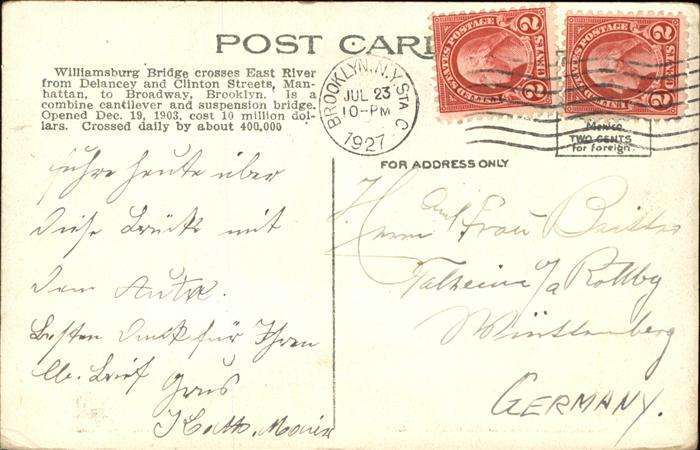 POST CARD
Williamsburg Bridge crosses East River
from Delancey and Clinton Streets, Man-
hattan, to Broadway, Brooklyn. Is a
combine cantilever and suspension bridge.
Opened Dec. 19, 1903, cost 10 million dol-
lars. Crossed daily by about 400,000
BROOKLYN, N.Y. STA. C
JUL 23
10-PM
1927
UNITED STATES POSTAGE
2 CENTS 2
UNITED STATES POSTAGE
2 CENTS 2
Mexico
TWO CENTS
for foreign.
FOR ADDRESS ONLY
fuhre heute über
diese Brücke mit
dem Auto.
Besten Dank für Ihren
lb. Brief Gruss
Kath. Maier
Herrn und Frau
Talheim o/a
Württemberg
GERMANY.